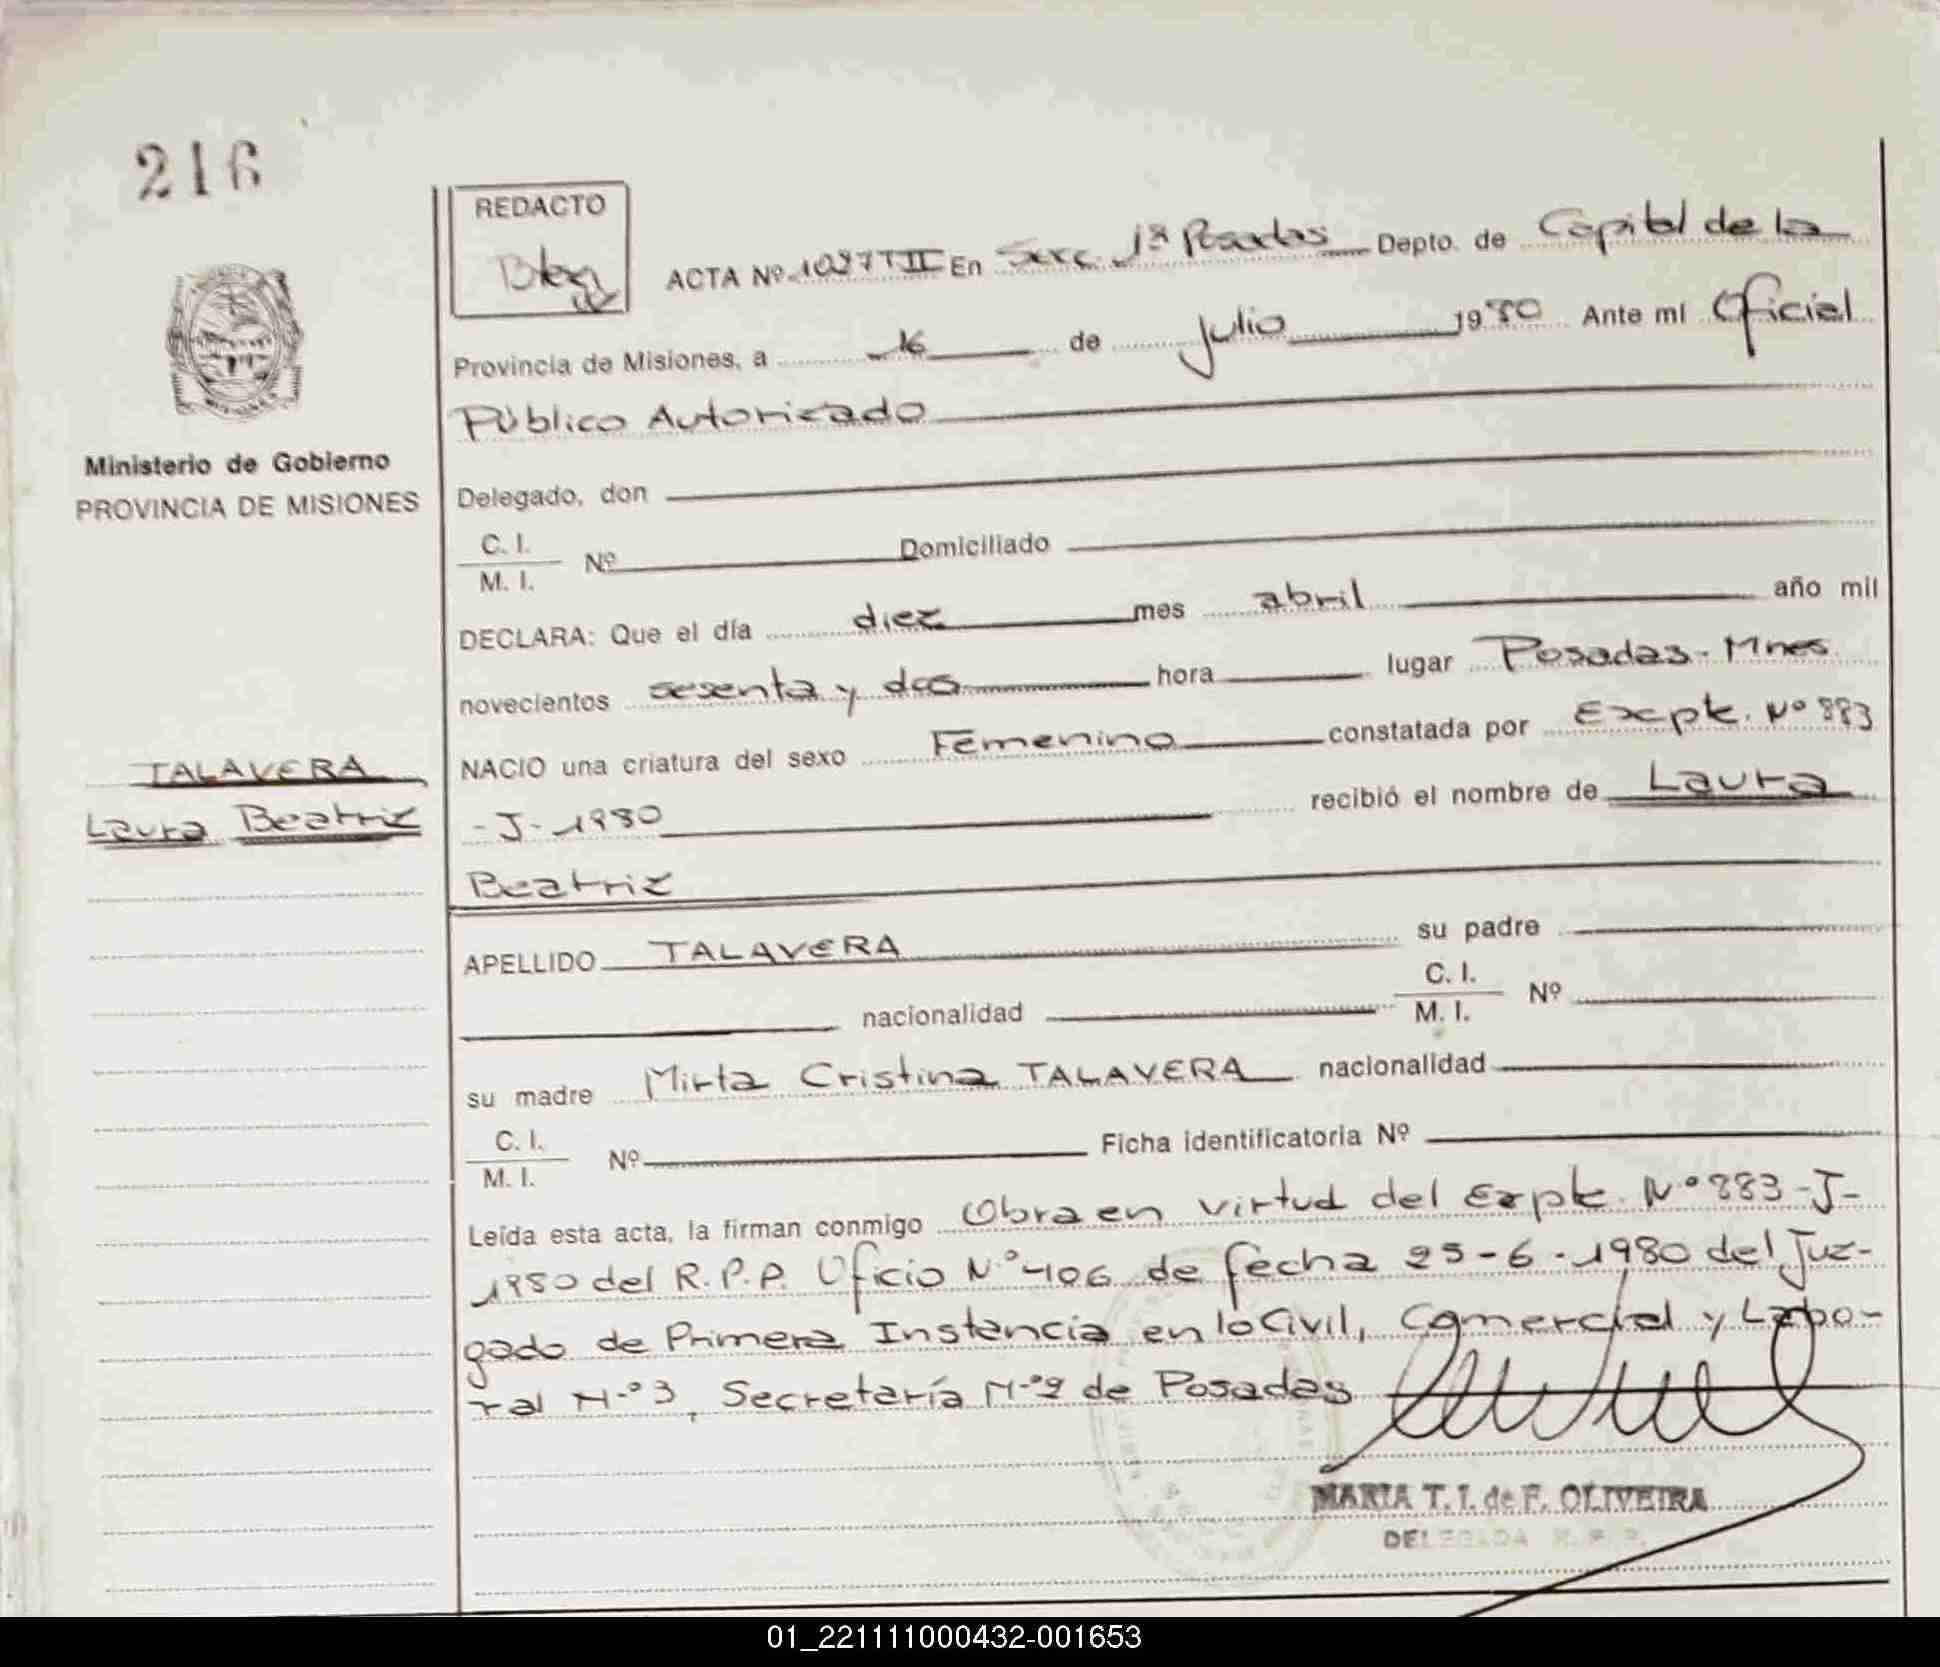 216
REDACTO
ACTA Nº 1037 T II En Secc. 1ª Posadas Depto. de Capital de la
Provincia de Misiones, a 16 de Julio 1980 Ante mí Oficial
Público Autorizado
Ministerio de Gobierno
PROVINCIA DE MISIONES
Delegado, don
C. I.
M. I. Nº Domiciliado
DECLARA: Que el día diez mes abril año mil
novecientos sesenta y dos hora lugar Posadas-Mnes.
NACIO una criatura del sexo Femenino constatada por Expte. Nº 883
TALAVERA
Laura Beatriz
-J-1980 recibió el nombre de Laura
Beatriz
APELLIDO TALAVERA su padre
nacionalidad C. I.
M. I. Nº
su madre Mirta Cristina TALAVERA nacionalidad
C. I.
M. I. Nº Ficha identificatoria Nº
Leída esta acta, la firman conmigo Obra en virtud del Expte. Nº 883-J-
1980 del R.P.P. Oficio Nº 406 de fecha 25-6-1980 del Juz-
gado de Primera Instancia en lo Civil, Comercial y Labo-
ral Nº 3, Secretaría Nº 2 de Posadas
MARIA T. I. de F. OLIVEIRA
DELEGADA R. P. P.
01_221111000432-001653